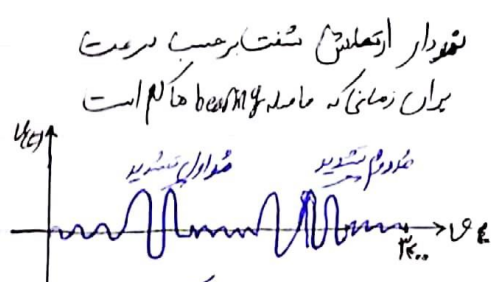 نمودار ارتعاش شفت برحسب سرعت
برای زمانی که فاصله bearing ها کم است
مد اول تشدید
مد دوم تشدید
۳۲۰۰